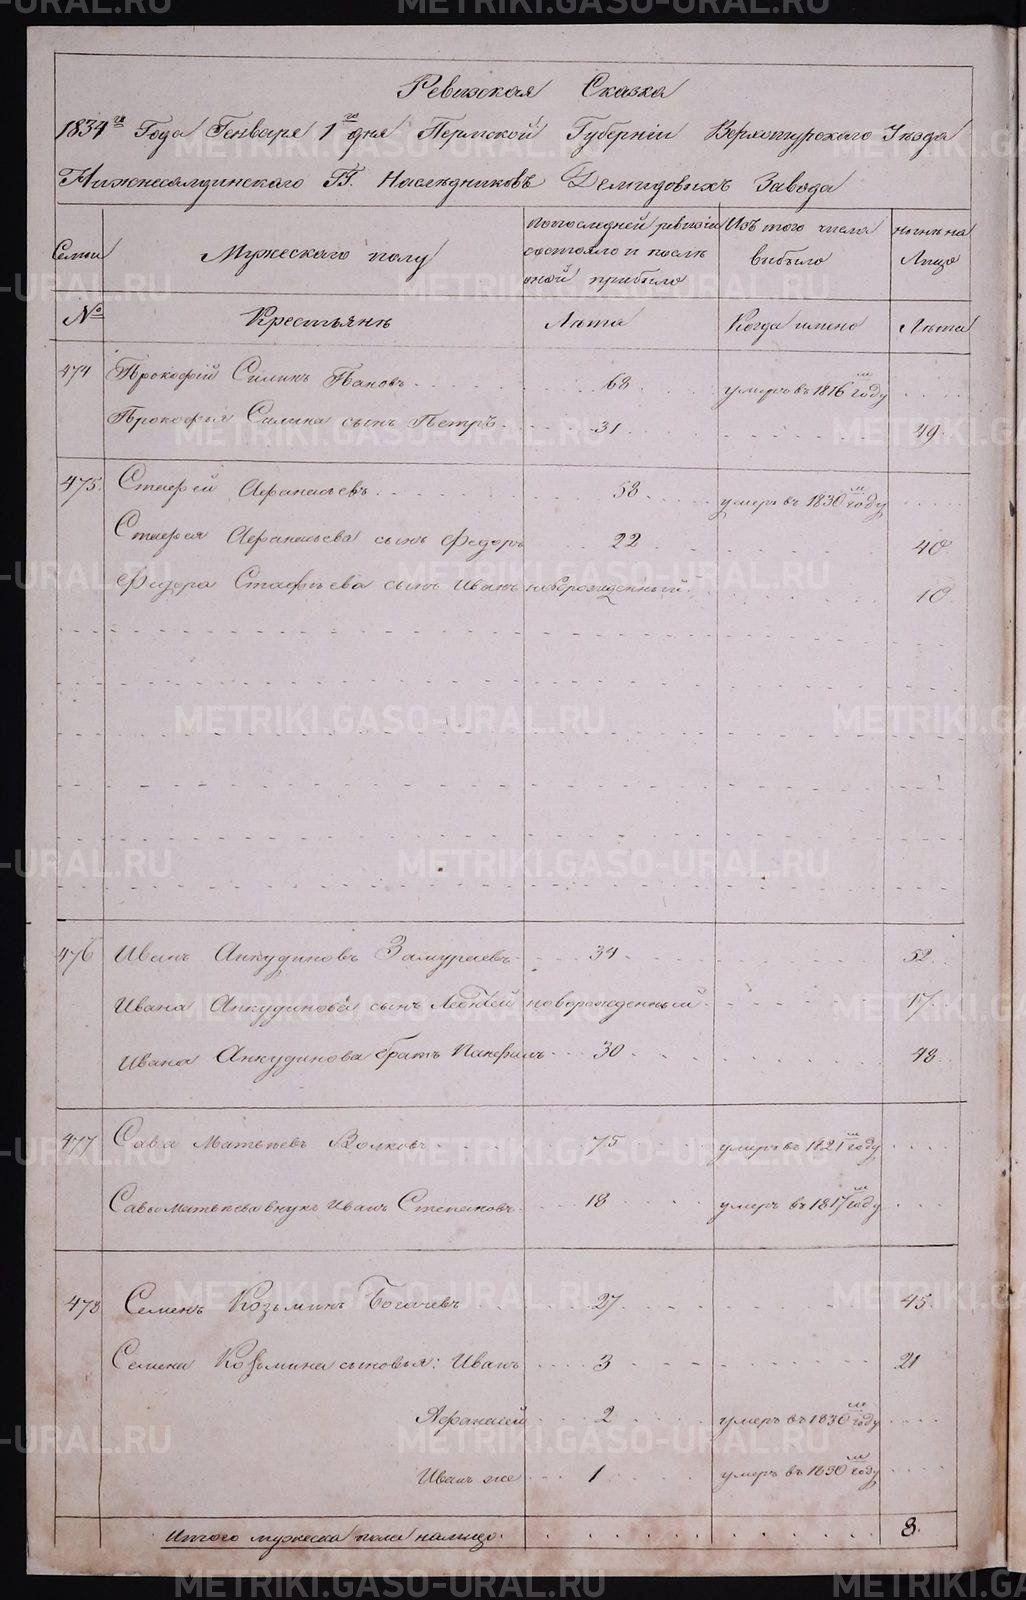 Ревизская Сказка
1834го Года Генваря 1го дня Пермской Губерніи Верхотурскаго Уезда
Нижнесалдинскаго Г. Г. Наслѣдниковъ Демидовыхъ Завода
Семьи Мужескаго полу По последней ревизіи состояло и послѣ оной прибыло Изъ того числа выбыло нынѣ на Лицо
№ Крестьянъ Лѣта Когда имено Лѣта
474 Прокофій Силинъ Пановъ 68 умеръ въ 1816м году
Прокофья Силина сынъ Петръ 31 49
475. Стафей Афанасьевъ 58 умеръ въ 1830м году
Стафея Афанасьева сынъ Федоръ 22 40
Федора Стафѣева сынъ Иванъ новорожденный 10
476 Иванъ Анкудиновъ Замураевъ 34 52
Ивана Анкудинова сынъ новорожденный 17.
Ивана Анкудинова братъ Панфилъ 30 48.
477 Сава Матвѣевъ Волковъ 75 умеръ въ 1821м году
Савы Матвѣева внукъ Иванъ Степановъ 18 умеръ въ 1817м году
478 Семенъ Козьминъ Богачевъ 27 45.
Семена Козьмина сыновья: Иванъ 3 21
Афанасей 2 умеръ въ 1830м году
Иванъ же 1 умеръ въ 1830м году
Итого мужеска пола налицо. 8.
METRIKI.GASO-URAL.RU